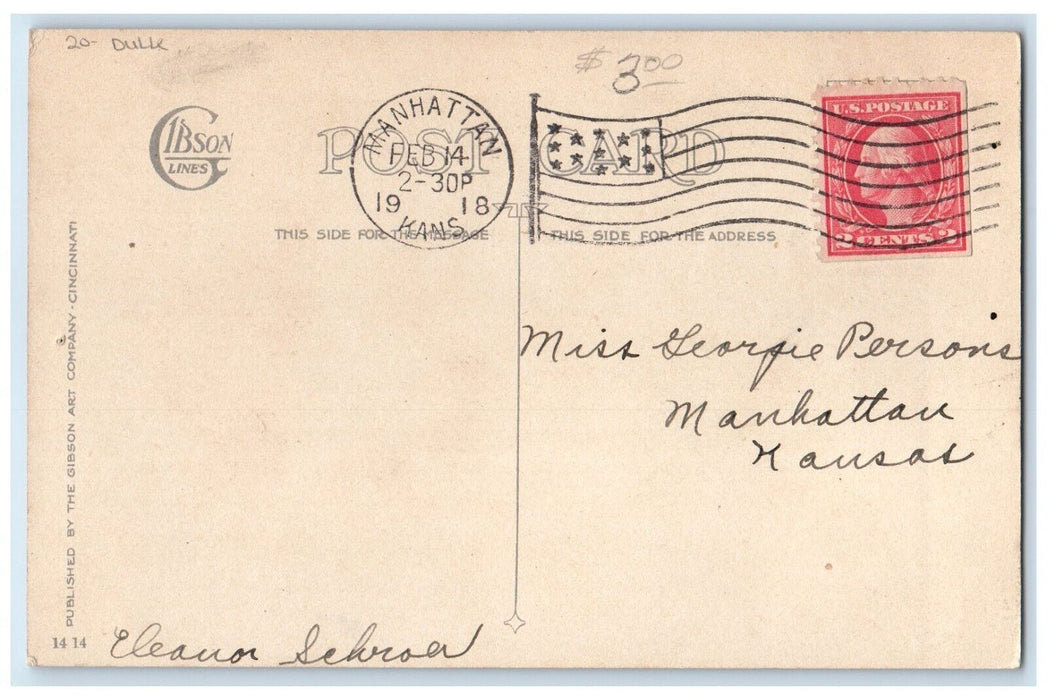 20- DULK
$ 3.00
GIBSON
LINES
POST CARD
MANHATTAN
FEB 14
2-30P
19 18
KANS.
U.S. POSTAGE
2 CENTS 2
THIS SIDE FOR THE MESSAGE
THIS SIDE FOR THE ADDRESS
PUBLISHED BY THE GIBSON ART COMPANY - CINCINNATI
Miss Georgie Persons
Manhattan
Kansas
14 14
Eleanor Schroer